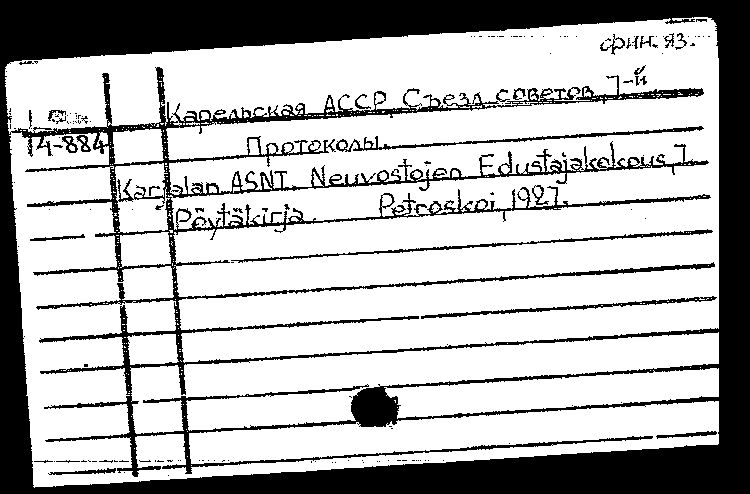 фин. яз.
Карельская АССР. Съезд советов, 7-й
14-884
Протоколы.
Karjalan ASNT. Neuvostojen Edustajakokous, 7.
Pöytäkirja. Petroskoi, 1927.